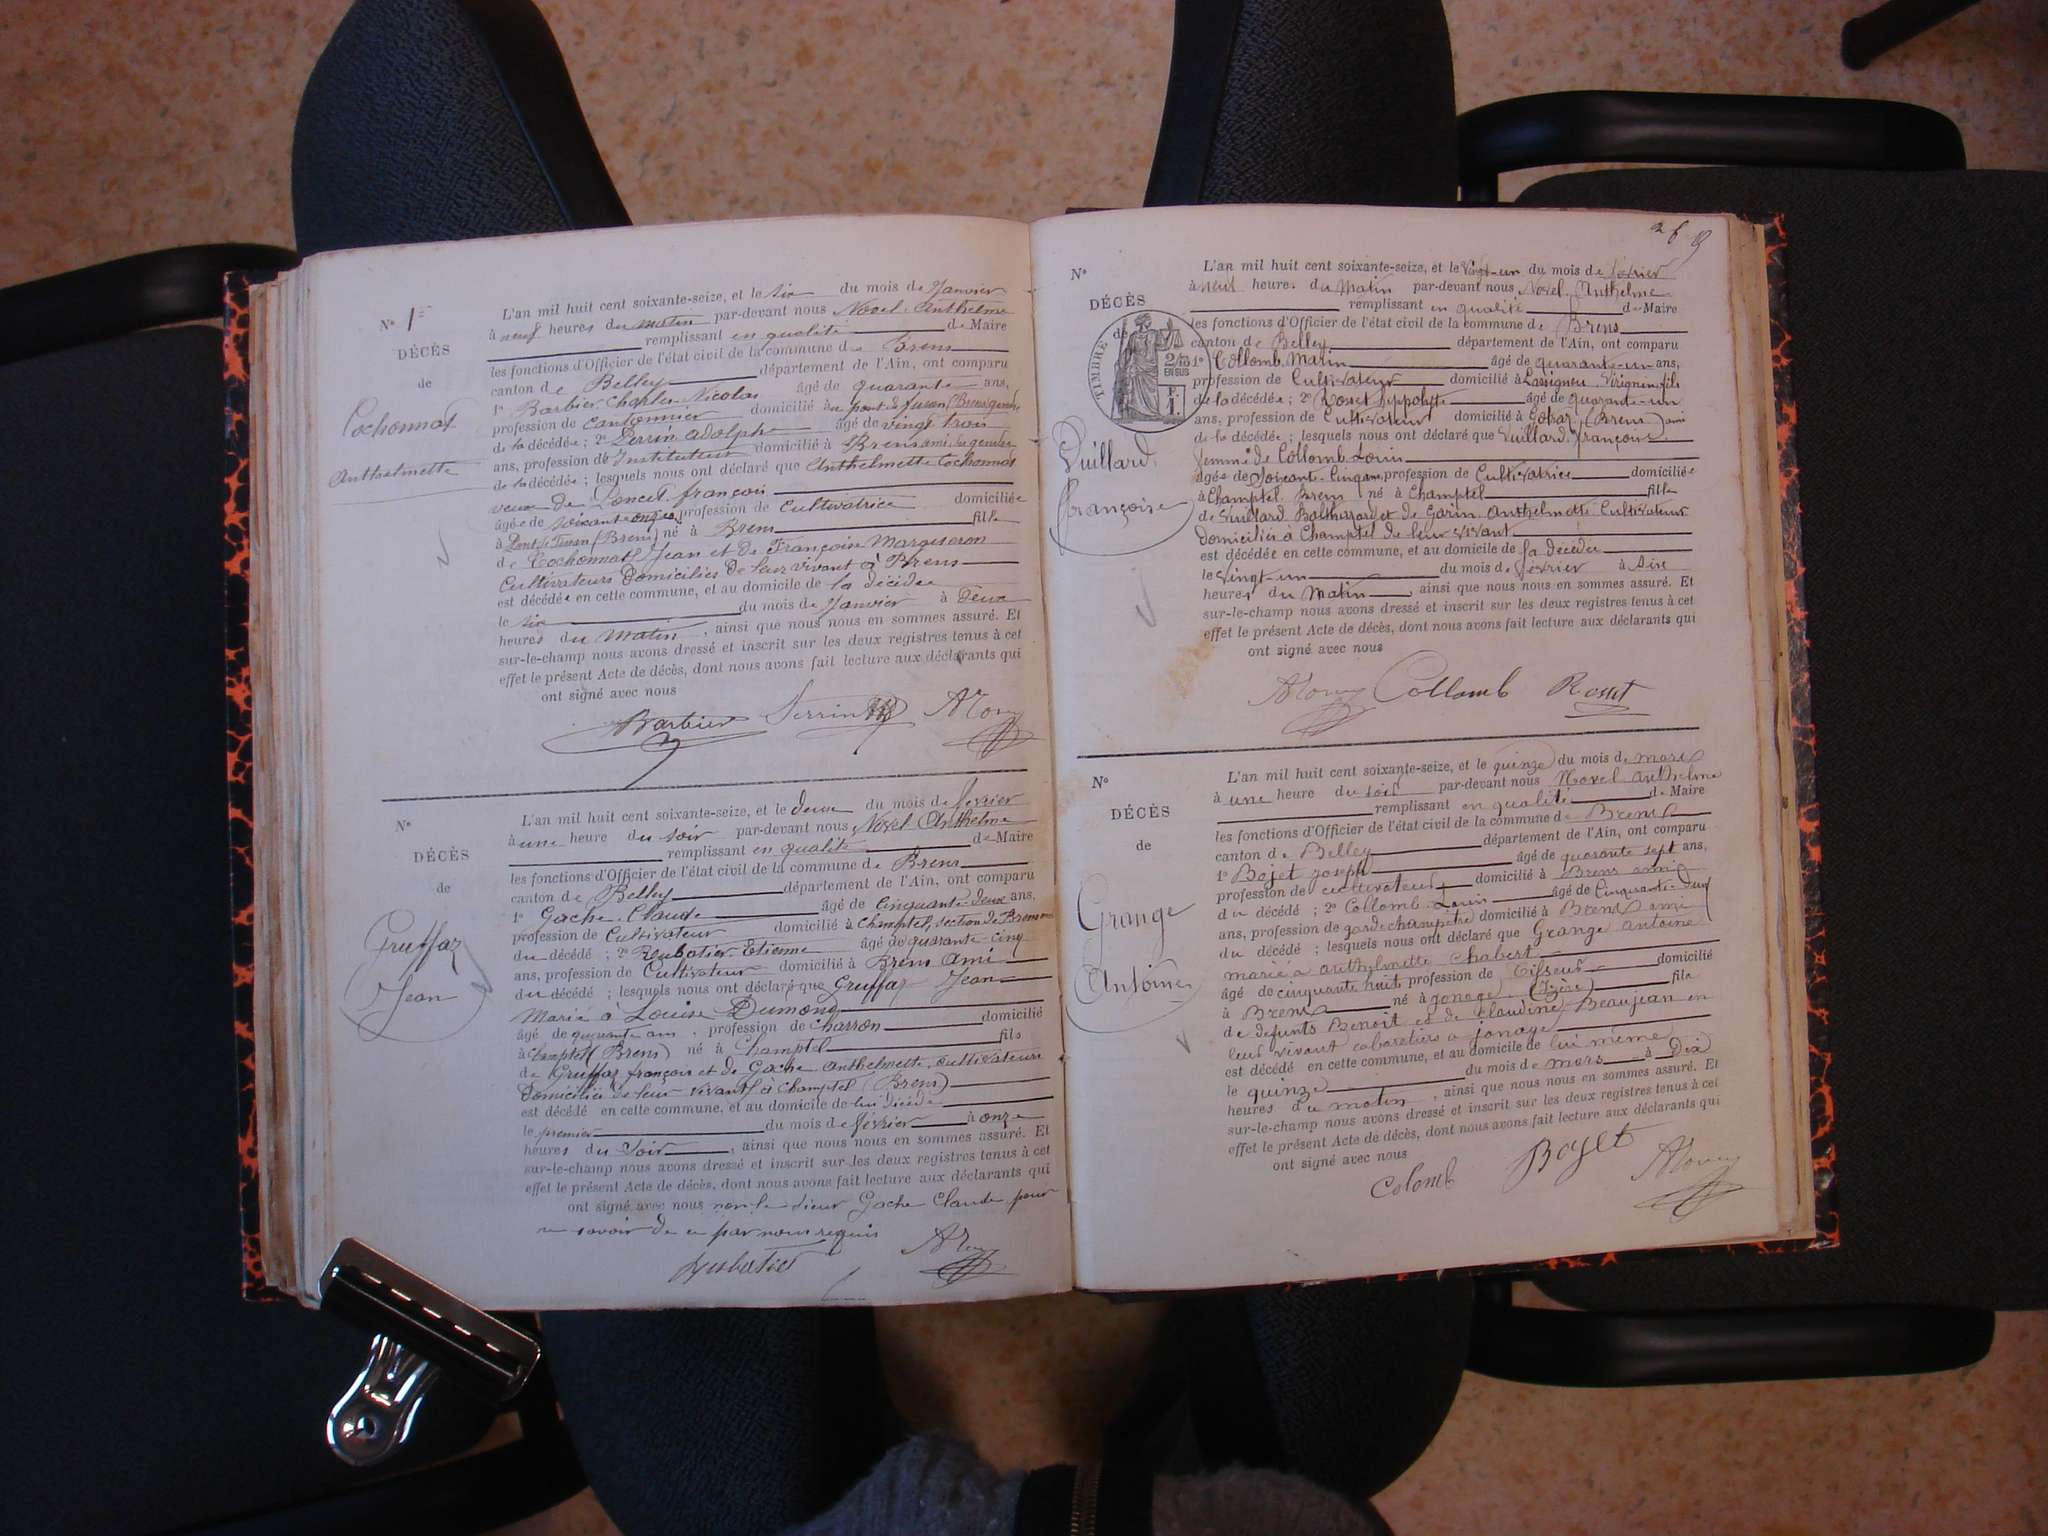 N° 1er
DÉCÈS
de
Cochonnat
Anthelmette
L'an mil huit cent soixante-seize, et le six du mois de Janvier
à neuf heures du matin par-devant nous Novel Anthelme
remplissant en qualité de Maire
les fonctions d'Officier de l'état civil de la commune de Brens
canton de Belley département de l'Ain, ont comparu
1° Barbier Charles Nicolas âgé de quarante ans,
profession de Cantonnier domicilié au pont de furan (Brens) gendre
de la décédée ; 2° Perrin Adolphe âgé de vingt trois
ans, profession de Instituteur domicilié à Brens ami
de la décédée ; lesquels nous ont déclaré que Anthelmette Cochonnat
veuve de Poncet françois
âgée de soixante onze profession de Cultivatrice domiciliée
à Pont de Furan (Brens) né à Brens fille
de Cochonnat Jean et de Françoise Margueron
Cultivateurs Domiciliés de leur vivant à Brens
est décédée en cette commune, et au domicile de la décédée
le six du mois de Janvier à Deux
heures du Matin, ainsi que nous nous en sommes assuré. Et
sur-le-champ nous avons dressé et inscrit sur les deux registres tenus à cet
effet le présent Acte de décès, dont nous avons fait lecture aux déclarants qui
ont signé avec nous
Barbier Perrin ANovel
N°
DÉCÈS
de
Gruffaz
Jean
L'an mil huit cent soixante-seize, et le deux du mois de février
à une heure du soir par-devant nous Novel Anthelme
remplissant en qualité de Maire
les fonctions d'Officier de l'état civil de la commune de Brens
canton de Belley département de l'Ain, ont comparu
1° Gache Claude âgé de Cinquante-deux ans,
profession de Cultivateur domicilié à Champtel, section de Brens
du décédé ; 2° Reubatier Etienne âgé de quarante-cinq
ans, profession de Cultivateur domicilié à Brens Ami
du décédé ; lesquels nous ont déclaré que Gruffaz Jean
Marié à Louise Dumond
âgé de quarante ans, profession de Charron domicilié
à Champtel (Brens) né à Champtel fils
de Gruffaz françois et de Gache Anthelmette, Cultivateurs
Domiciliés de leur vivant à Champtel (Brens)
est décédé en cette commune, et au domicile de lui décédé
le premier du mois de février à onze
heures du Soir, ainsi que nous nous en sommes assuré. Et
sur-le-champ nous avons dressé et inscrit sur les deux registres tenus à cet
effet le présent Acte de décès, dont nous avons fait lecture aux déclarants qui
ont signé avec nous non le sieur Gache Claude pour
ne savoir de ce par nous requis
Reubatier ANovel
269
N°
DÉCÈS
de
TIMBRE
2/10 EN SUS
F. 1.
Vuillard
Françoise
L'an mil huit cent soixante-seize, et le vingt-un du mois de février
à neuf heures du Matin par-devant nous Novel Anthelme
remplissant en qualité de Maire
les fonctions d'Officier de l'état civil de la commune de Brens
canton de Belley département de l'Ain, ont comparu
1° Collomb Marin âgé de quarante-un ans,
profession de Cultivateur domicilié à Lassigneu Virignin fils
de la décédée ; 2° Rosset hippolyte âgé de quarante-un
ans, profession de Cultivateur domicilié à (Brens) ami
de la décédée ; lesquels nous ont déclaré que Vuillard françoise
femme de Collomb Louis
âgée de Soixante-Cinq ans profession de Cultivatrice domiciliée
à Champtel Brens né à Champtel fille
de Vuillard Balthazard et de Garin Anthelmette Cultivateurs
Domiciliés à Champtel de leur vivant
est décédée en cette commune, et au domicile de la décédée
le vingt-un du mois de février à Six
heures du Matin, ainsi que nous nous en sommes assuré. Et
sur-le-champ nous avons dressé et inscrit sur les deux registres tenus à cet
effet le présent Acte de décès, dont nous avons fait lecture aux déclarants qui
ont signé avec nous
ANovel Collomb Rosset
N°
DÉCÈS
de
Grange
Antoine
L'an mil huit cent soixante-seize, et le quinze du mois de mars
à une heure du soir par-devant nous Novel Anthelme
remplissant en qualité de Maire
les fonctions d'Officier de l'état civil de la commune de Brens
canton de Belley département de l'Ain, ont comparu
1° Bojet joseph âgé de quarante sept ans,
profession de cultivateur domicilié à Brens ami
du décédé ; 2° Collomb Louis âgé de Cinquante-Deux
ans, profession de garde champêtre domicilié à Brens ami
du décédé ; lesquels nous ont déclaré que Grange Antoine
marié à Anthelmette Chabert
âgé de cinquante huit profession de Tisseur domicilié
à Brens né à jonage (Isère) fils
de defunts Benoit et de Claudine Beaujean en
leur vivant cabaretiers a jonage
est décédé en cette commune, et au domicile de lui même
le quinze du mois de mars à Dix
heures du matin, ainsi que nous nous en sommes assuré. Et
sur-le-champ nous avons dressé et inscrit sur les deux registres tenus à cet
effet le présent Acte de décès, dont nous avons fait lecture aux déclarants qui
ont signé avec nous
Colomb Bojet ANovel